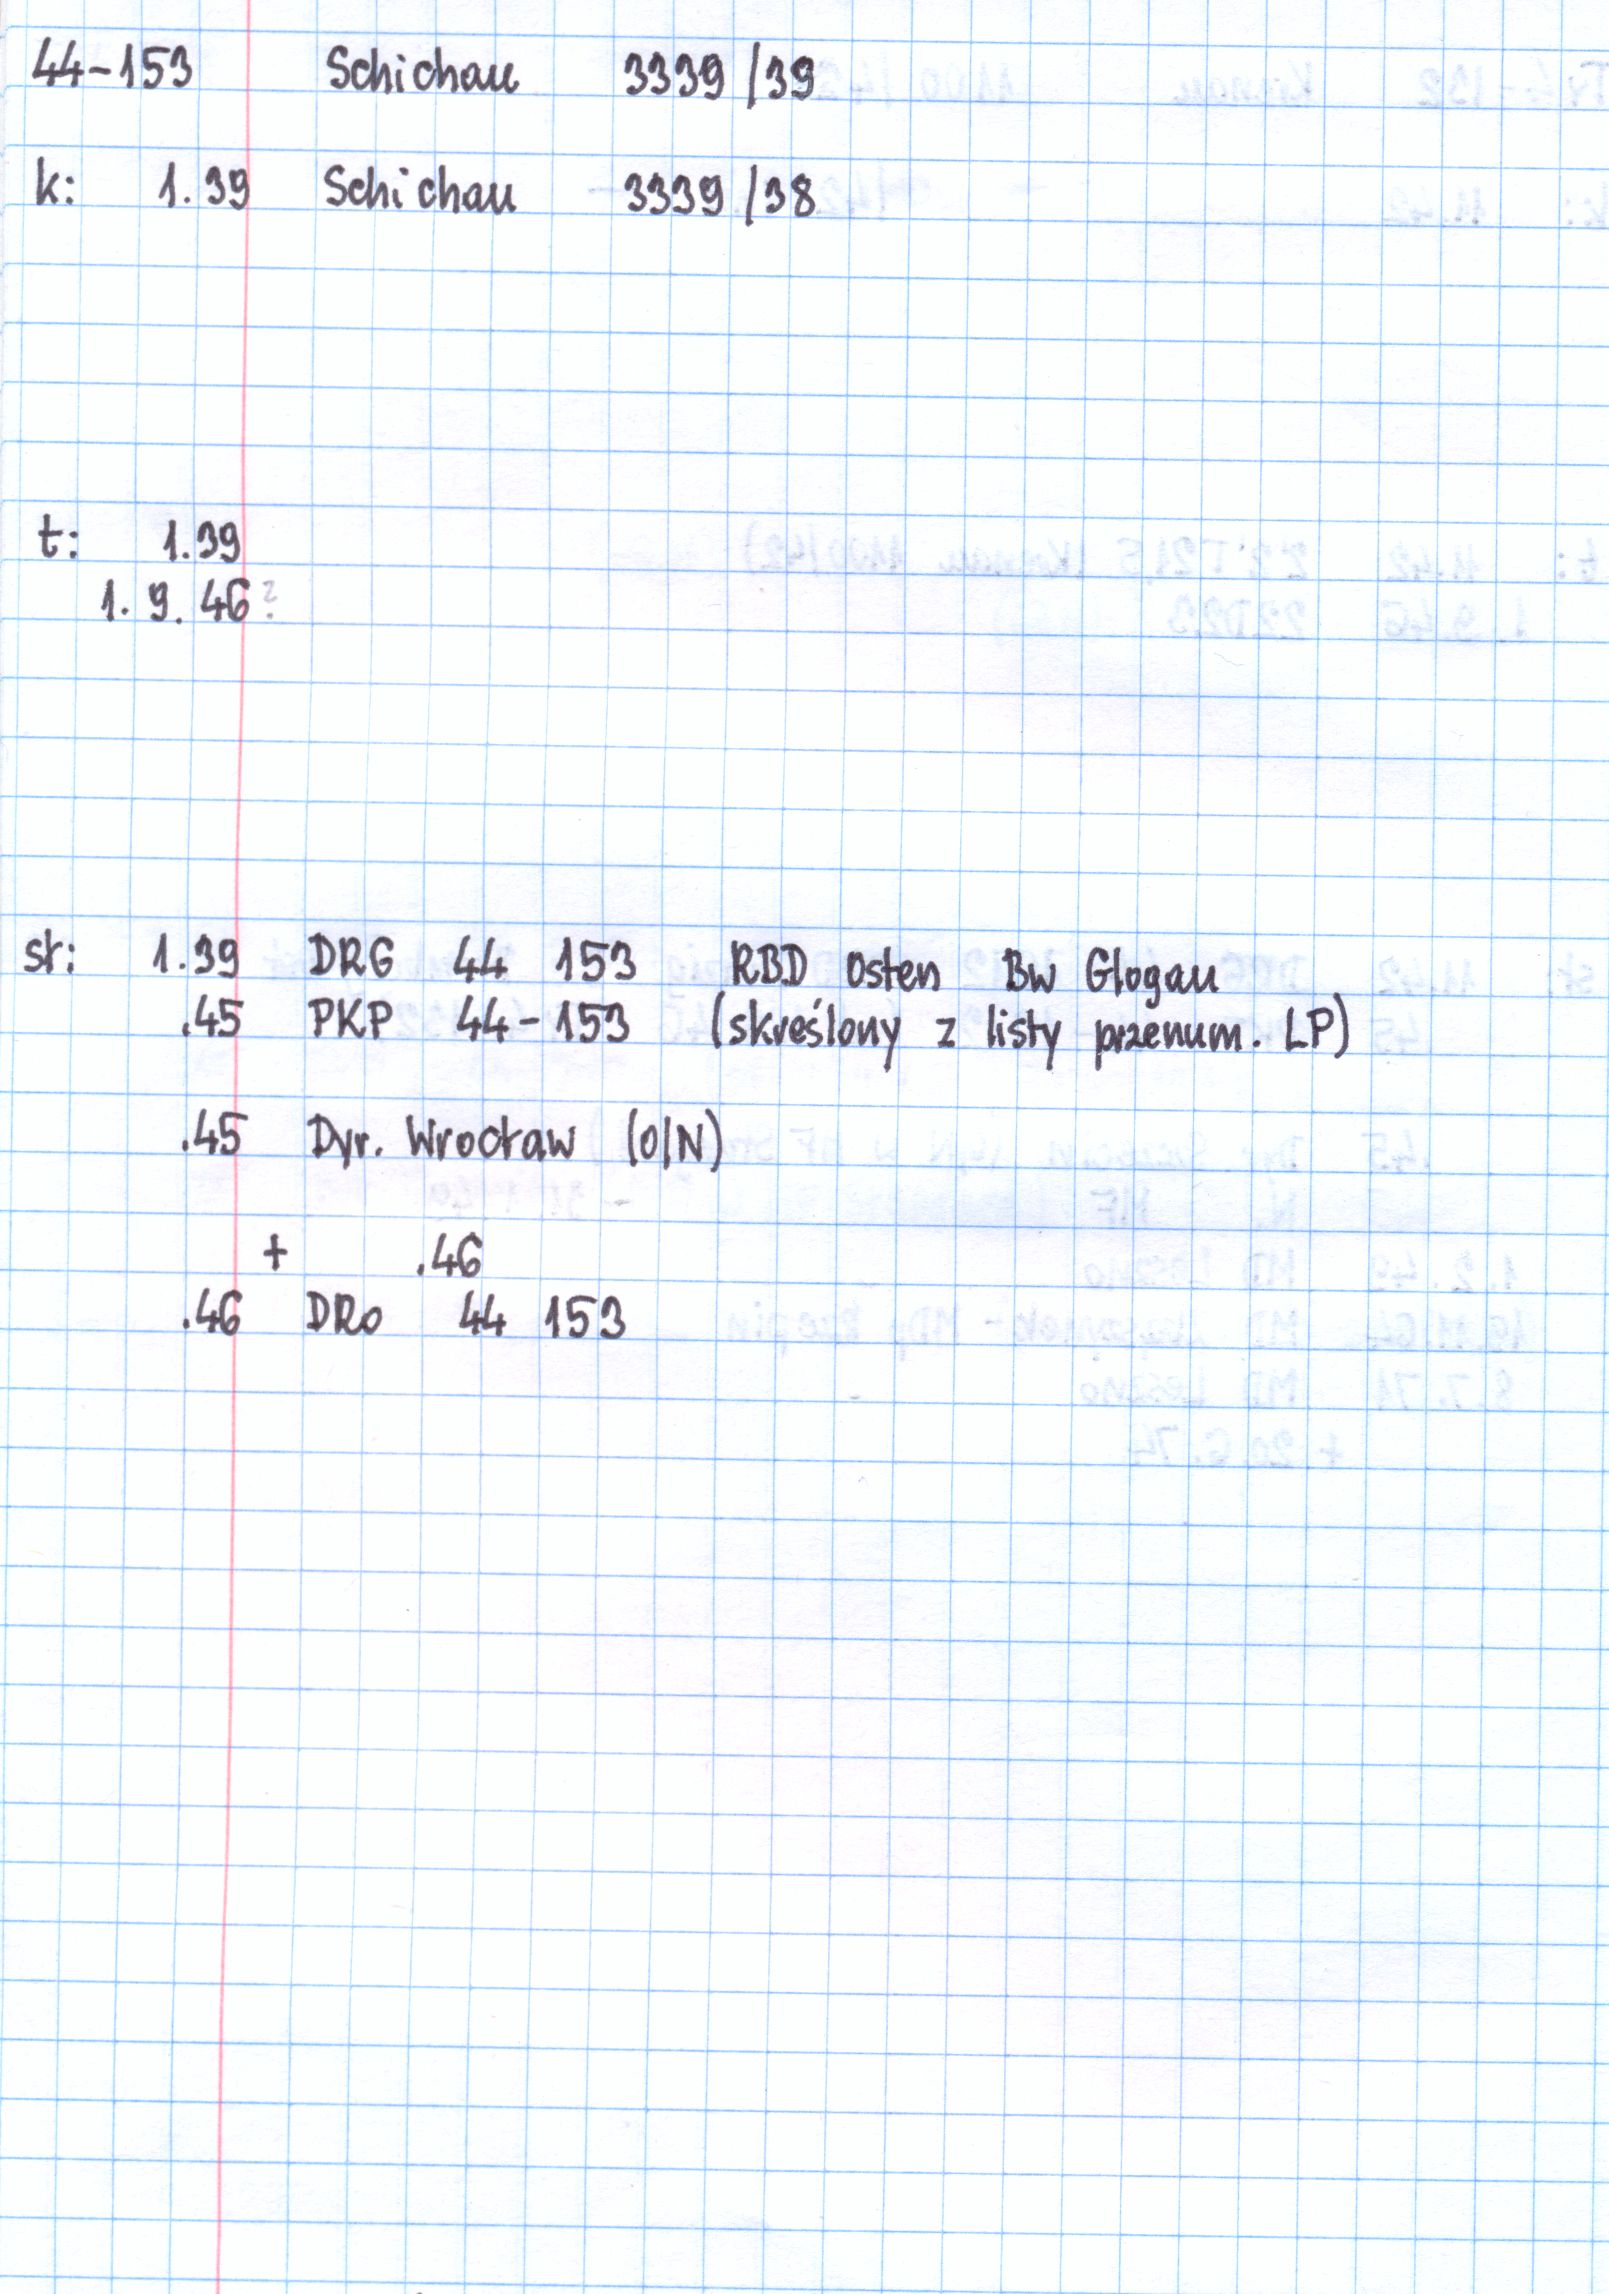 44-153 Schichau 3339/39
k: 1.39 Schichau 3339/38
t: 1.39
1. 9. 46?
st: 1.39 DRG 44 153 RBD Osten Bw Glogau
.45 PKP 44-153 (skreślony z listy przenum. LP)
.45 Dyr. Wrocław (O/N)
+ .46
.46 DRo 44 153